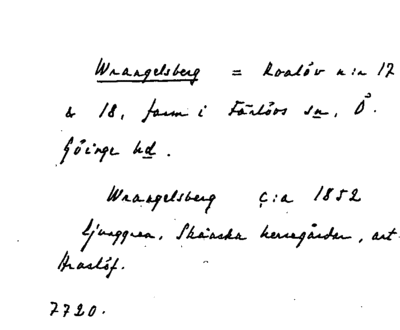 Wrangelsberg = Araslöv n:r 17
& 18, farm i Färlövs sn, Ö.
Göinge hd.
Wrangelsberg c:a 1852
Ljunggren, Skånska herregårdar, art.
Araslöf.
7720.